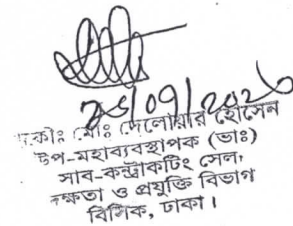 মোঃ দেলোয়ার হোসেন
উপ-মহাব্যবস্থাপক (ভাঃ)
সাব-কন্ট্রাকটিং সেল,
দক্ষতা ও প্রযুক্তি বিভাগ
বিসিক, ঢাকা।